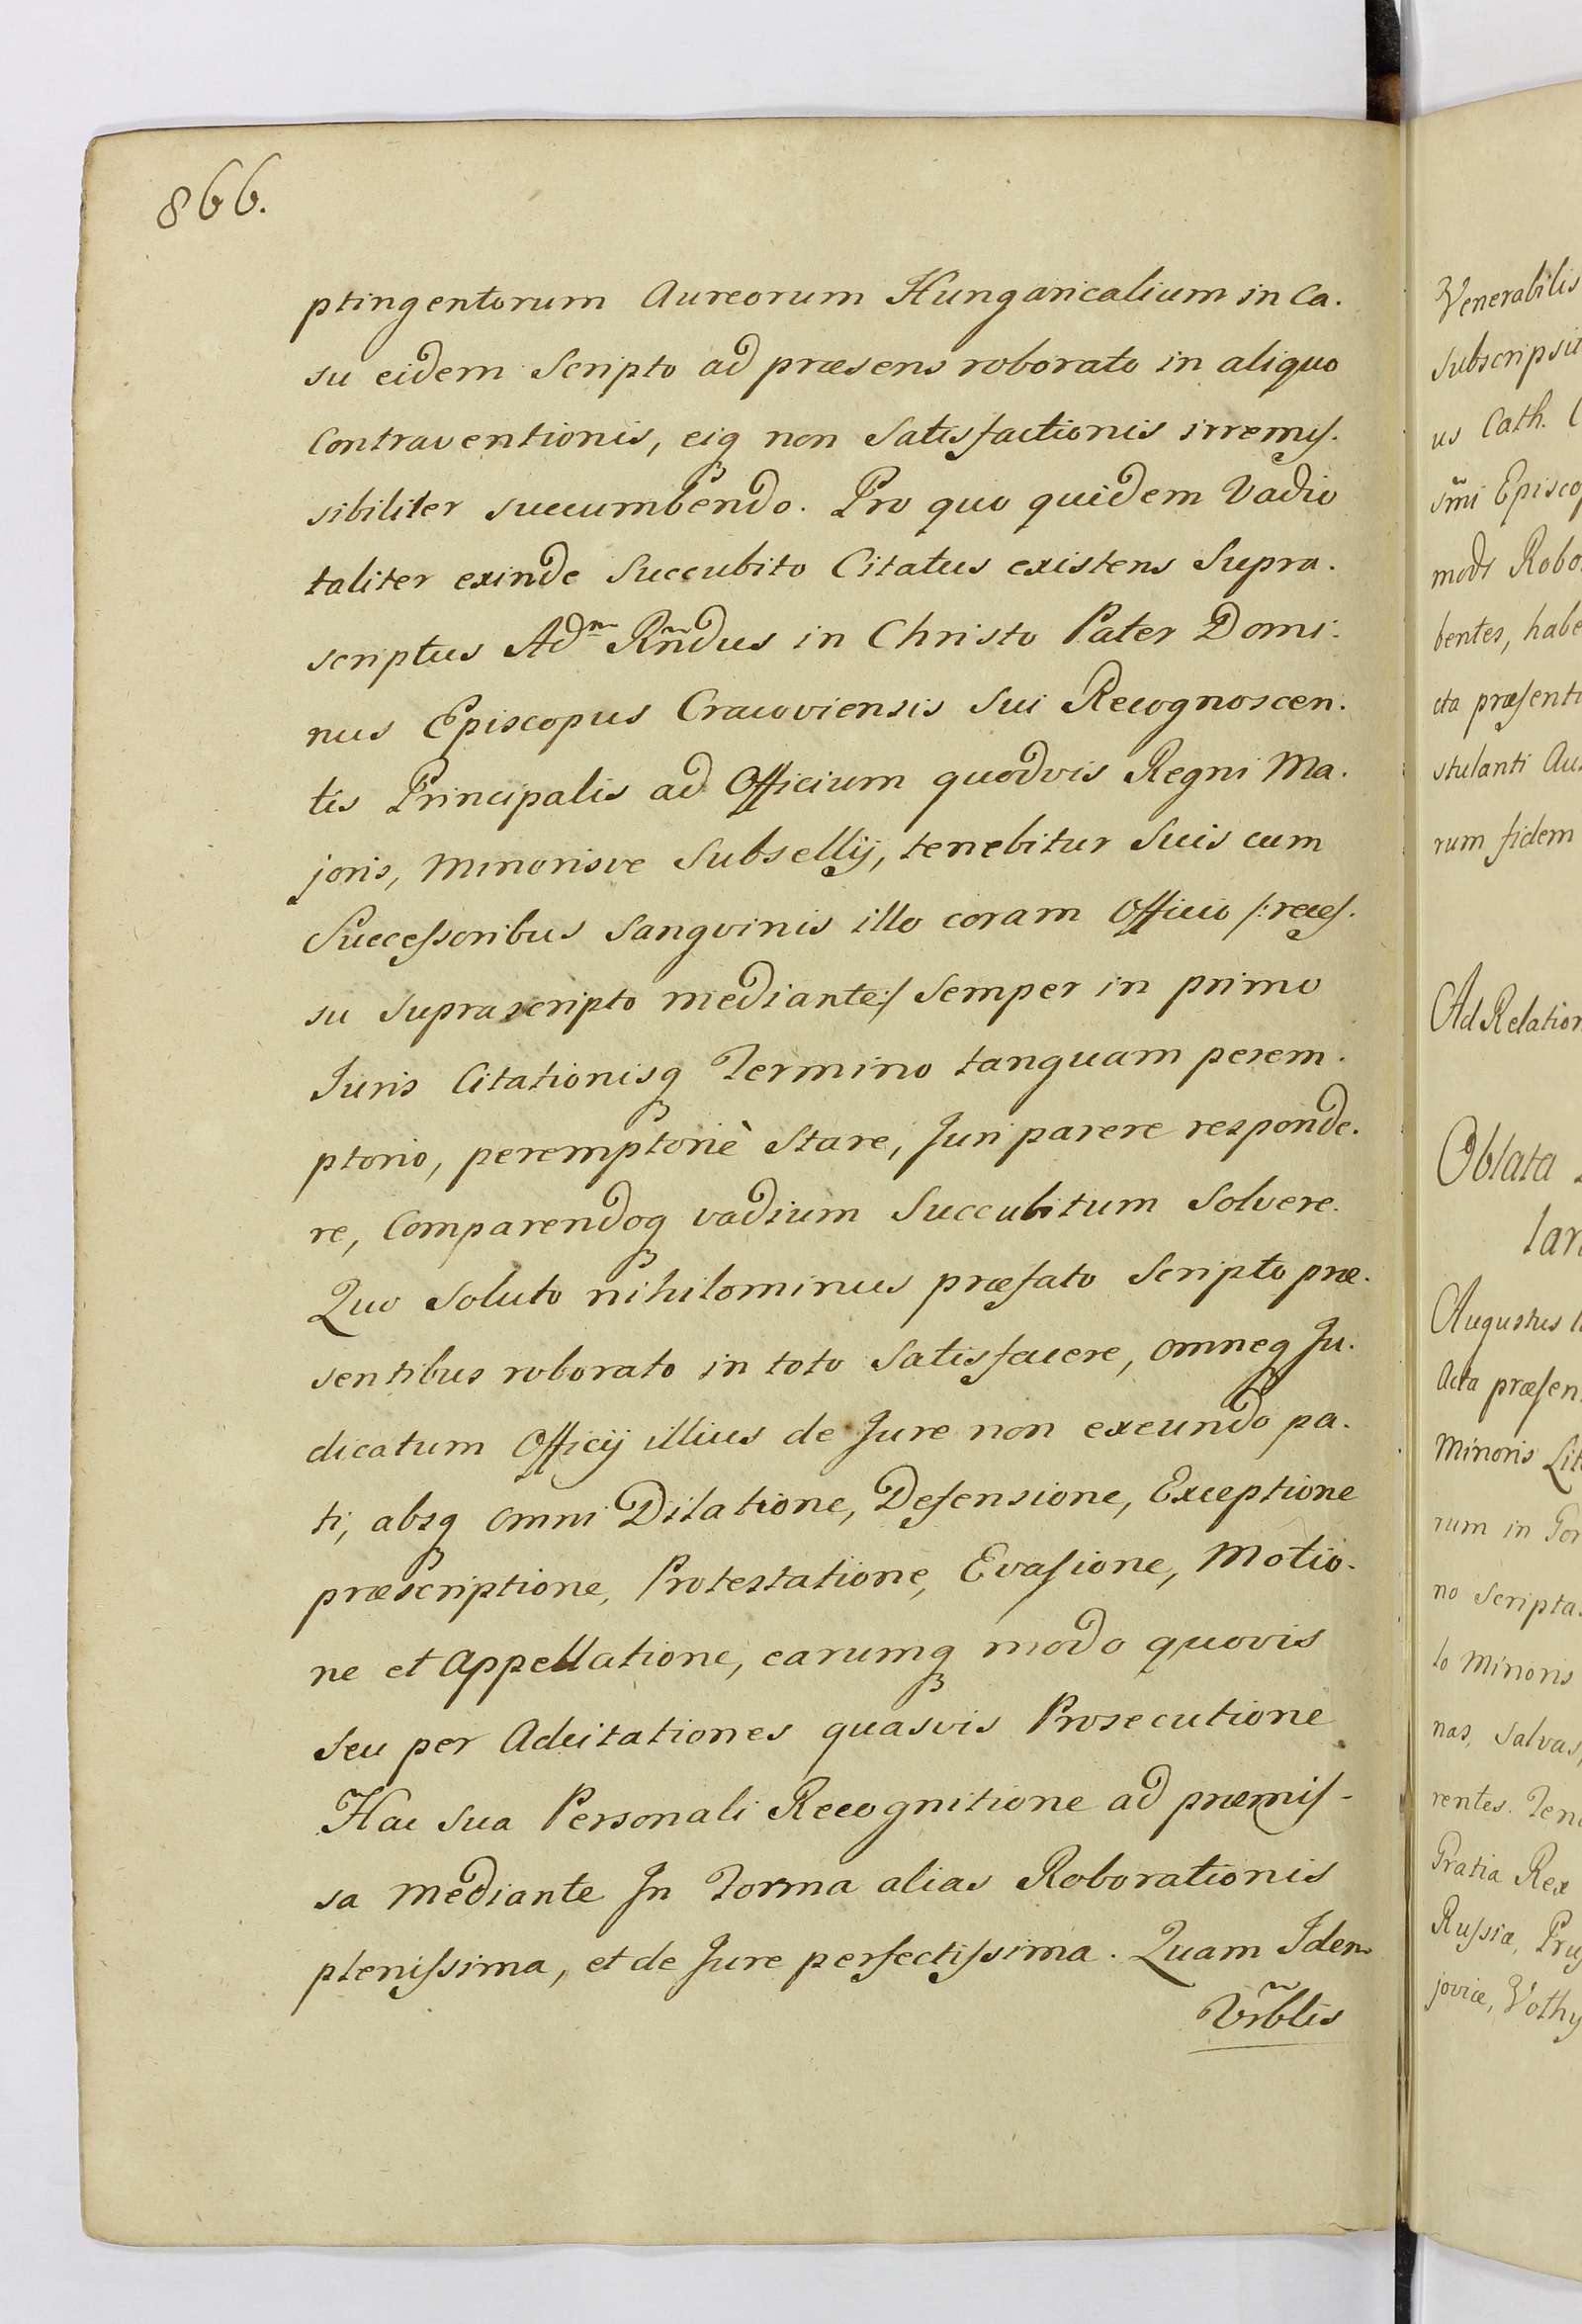 866.
ptingentorum Aureorum Hungaricalium in Ca.
su eidem Scripto ad præsens roborato in aliquo
Contraventionis, eiq₃ non Satisfactionis irremis.
sibiliter succumbendo. Pro quo quidem Vadio
taliter exinde Succubito Citatus existens Supra.
scriptus Adm̃ Rñdus in Christo Pater Domi.
nus Episcopus Cracoviensis Sui Recognoscen.
tis Principalis ad Officium quodvis Regni Ma.
joris, Minorisve Subsellij, tenebitur Suis cum
Successoribus Sangvinis illo coram Officio /:reces.
su suprascripto mediante:/ Semper in primo
Juris Citationisq₃ Termino tanquam perem.
ptorio, peremptoriè Stare, Juri parere responde.
re, Comparendoq₃ vadium Succubitum Solvere.
Quo Soluto nihilominus præfato Scripto præ.
sentibus roborato in toto Satisfacere, omneq₃ Ju.
dicatum Officij illius de Jure non exeundo pa.
ti, absq₃ omni Dilatione, Defensione, Exceptione
præscriptione, Protestatione, Evasione, Motio.
ne et Appellatione, earumq₃ modo quovis
Seu per Adcitationes quasvis Prosecutione
Hac Sua Personali Recognitione ad præmis-
sa Mediante In Forma alias Roborationis
plenissima, et de Jure perfectissima. Quam Idem
Vrñblis
Venerabilis
Subscripsit
us Cath. C
sm̃i Episcop
modi Robo
bentes, habe
cta præsenti
stulanti Au
rum fidem
Ad Relation
Oblata
lar
Augustus
Acta præsen
Minoris Lit
rum in
no Scripta
lo Minoris
nas, Salvas,
rentes. Teno
Gratia Rex
Russiæ, Pruss
joviæ, Volhy